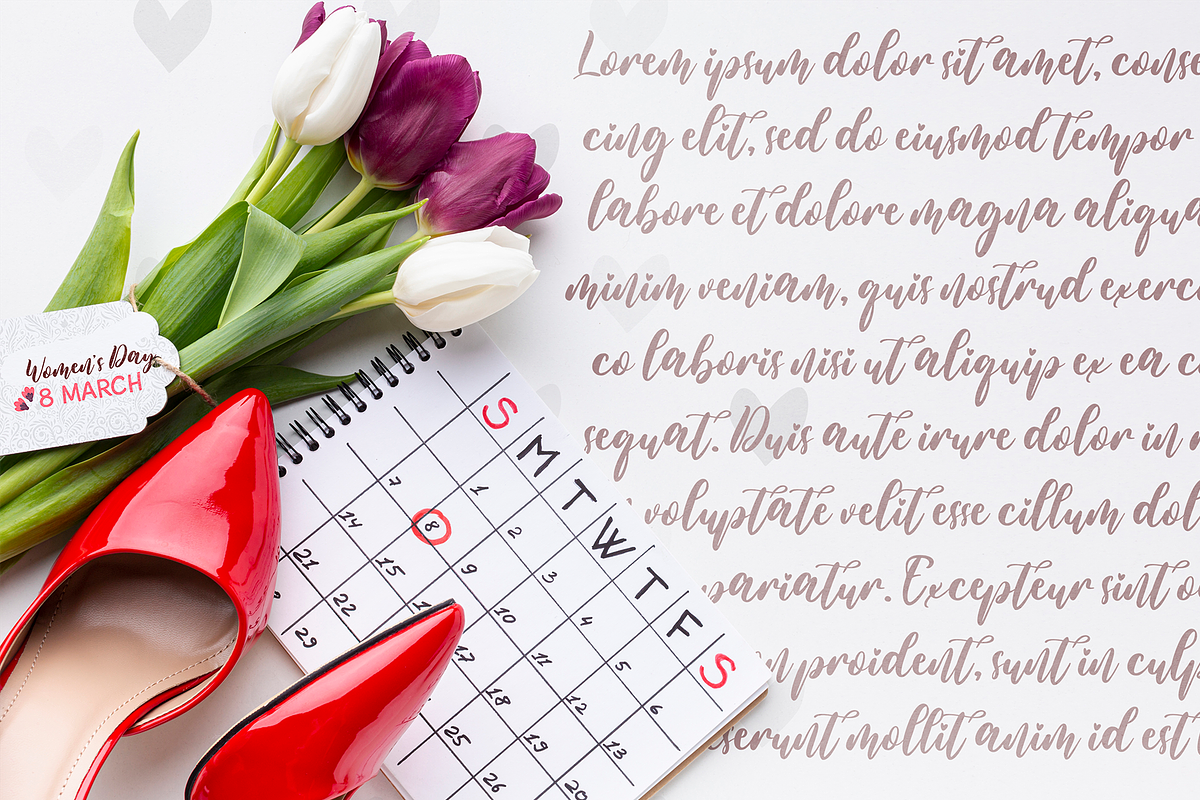 Lorem ipsum dolor sit amet, conse
cing elit, sed do eiusmod tempor
labore et dolore magna aliqua
minim veniam, quis nostrud exerc
co laboris nisi ut aliquip ex ea c
sequat. Duis aute irure dolor in
voluptate velit esse cillum dol
pariatur. Excepteur sint o
n proident, sunt in culp
serunt mollit anim id est
Women's Day
8 MARCH
S M T W T F S
1 2 3 4 5 6
7 8 9 10 11 12 13
14 15 17 18 19 20
21 22 25 26
29